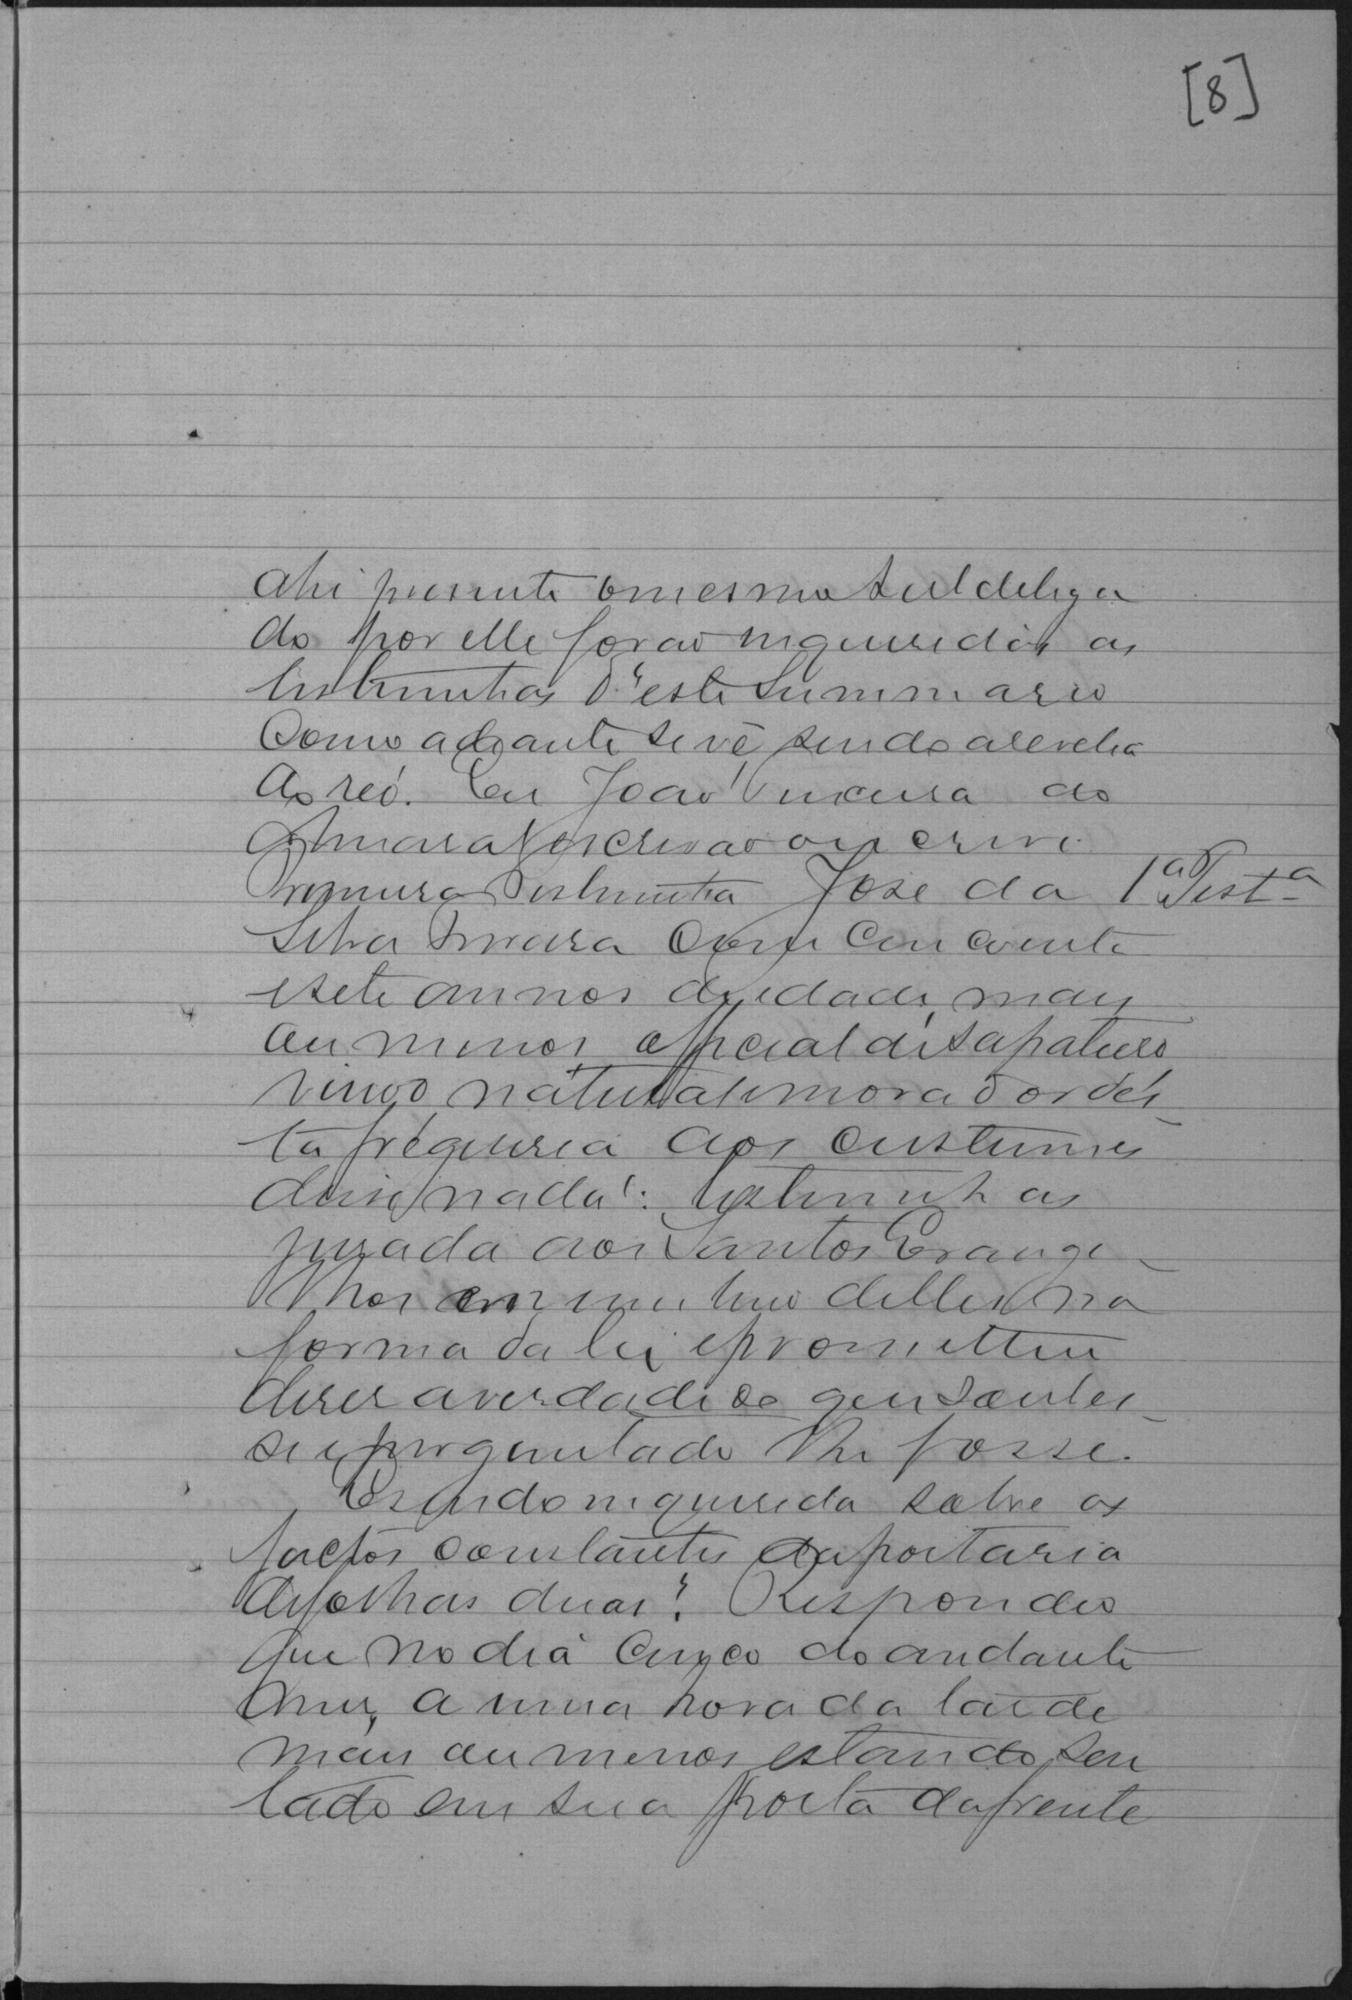 [8]
ahi presente o mesmo Subdelega
do por elle forão inqueridas as
testemunhas d'este Summario
Como adiante se vê, sendo a revelia
do reó. Eu João da
Amaral escrivão o escrevi
Primeira Testemunha José da 1ª Testª
Silva com cincoenta
e sete annos de idade, mais
ou menos, official de sapateiro
viuvo, natural e morador d'es
ta freguesia aos custumes
disse nada: testemunhas
jurada aos Santos Evange
lhos em um livro delles na
forma da lei e prometteu
diser a verdade do que soubes
se e perguntado lhe fosse.
E sendo inquerida sobre os
factos constantes da portaria
de folhas duas? Respondeo
que no dia cinco do andante
mes, a uma hora da tarde
mais ou menos estando sen
tado em sua porta da frente